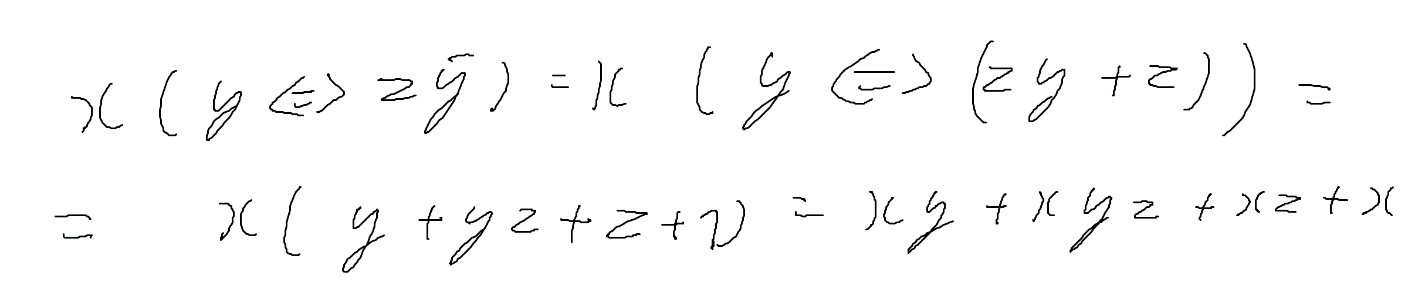 x(y⇔zȳ)=x(y⇔(zy+z))=
= x(y+yz+z+1)=xy+xyz+xz+x